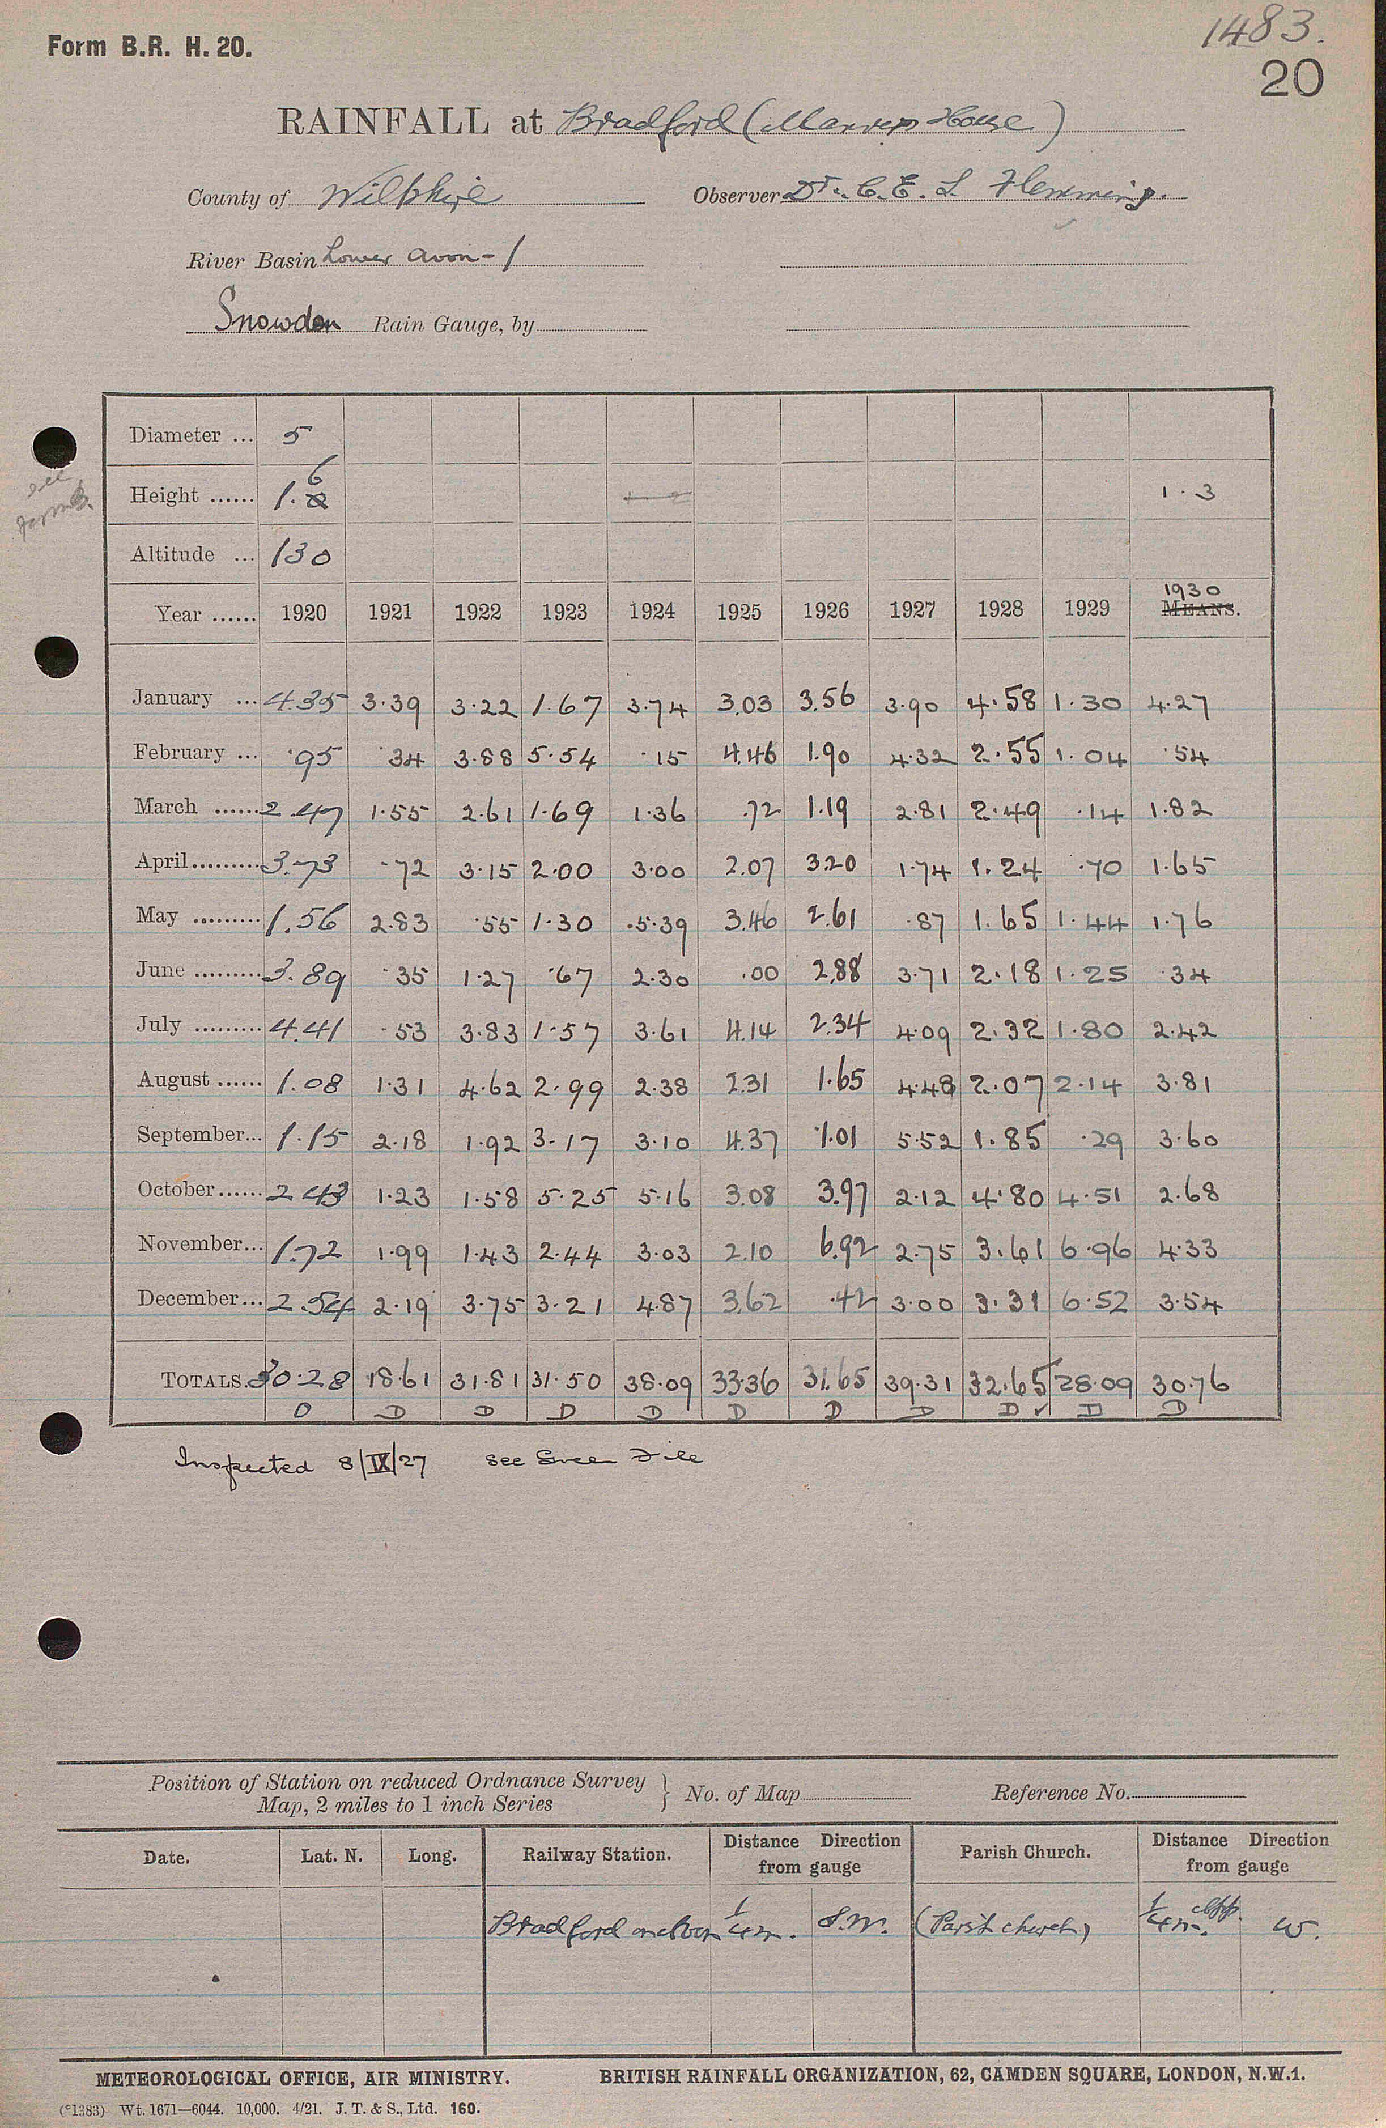 1483.
Form B.R. H. 20.
20
RAINFALL at Bradford ( House)
County of Wiltshire Observer Dr. C. E. S. Flemming.
River Basin Lower Avon - 1
Snowdon Rain Gauge, by
Diameter ... 5
see
Form B.
Height ...... 1. 6 1.3
Altitude ... 130
Year ...... 1920 1921 1922 1923 1924 1925 1926 1927 1928 1929 1930 MEANS.
January ... 4.35 3.39 3.22 1.67 3.74 3.03 3.56 3.90 4.58 1.30 4.27
February ... .95 .34 3.88 5.54 .15 4.46 1.90 4.32 2.55 1.04 .54
March ...... 2.47 1.55 2.61 1.69 1.36 .72 1.19 2.81 2.49 .14 1.82
April ......... 3.73 .72 3.15 2.00 3.00 2.07 3.20 1.74 1.24 .70 1.65
May ......... 1.56 2.83 .55 1.30 .5.39 3.46 2.61 .87 1.65 1.44 1.76
June ......... 3.89 .35 1.27 .67 2.30 .00 2.88 3.71 2.18 1.25 .34
July ......... 4.41 .53 3.83 1.57 3.61 4.14 2.34 4.09 2.32 1.80 2.42
August ...... 1.08 1.31 4.62 2.99 2.38 2.31 1.65 4.48 2.07 2.14 3.81
September... 1.15 2.18 1.92 3.17 3.10 4.37 1.01 5.52 1.85 .29 3.60
October ...... 2.43 1.23 1.58 5.25 5.16 3.08 3.97 2.12 4.80 4.51 2.68
November... 1.72 1.99 1.43 2.44 3.03 2.10 6.92 2.75 3.61 6.96 4.33
December... 2.54 2.19 3.75 3.21 4.87 3.62 .42 3.00 3.31 6.52 3.54
TOTALS. 30.28 18.61 31.81 31.50 38.09 33.36 31.65 39.31 32.65 28.09 30.76
D D D D D D D D D ✓ D D
Inspected 8/IX/27 see Green File
Position of Station on reduced Ordnance Survey
Map, 2 miles to 1 inch Series } No. of Map Reference No.
Date. Lat. N. Long. Railway Station. Distance Direction from gauge Parish Church. Distance Direction from gauge
Bradford on Avon 1/4 m. S.W. (Parish church) 1/4 m. app. W.
METEOROLOGICAL OFFICE, AIR MINISTRY. BRITISH RAINFALL ORGANIZATION, 62, CAMDEN SQUARE, LONDON, N.W.1.
(*1383) Wt. 1671—6044. 10,000. 4/21. J. T. & S., Ltd. 160.